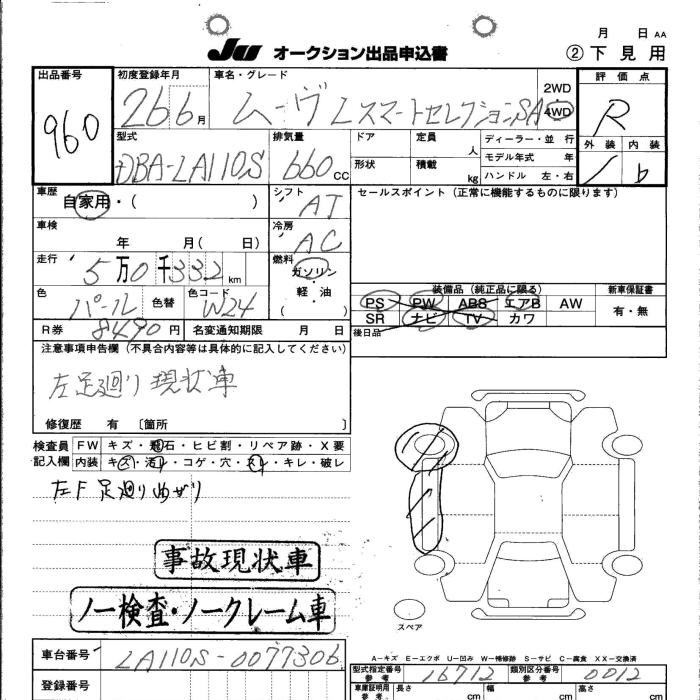 月 日 AA
JU オークション出品申込書 ②下見用
出品番号 初度登録年月 車名・グレード 評価点
960 26 6月 ムーヴ Lスマートセレクション SA 2WD 4WD R
型式 排気量 ドア 定員 人 ディーラー・並行 外装 内装
DBA-LA110S 660cc 形状 積載 kg モデル年式 年 ハンドル 左・右 b
車歴 シフト セールスポイント(正常に機能するものに限ります)
自家用・( ) AT
車検 冷房
年 月( 日) AC
走行 燃料
5万0千332km ガソリン・軽・油 ( )
色 色替 色コード 装備品(純正品に限る) 新車保証書
パール W24 PS PW ABS エアB AW 有・無
R券 8490円 名変通知期限 月 日 SR ナビ TV カワ
注意事項申告欄(不具合内容等は具体的に記入してください) 後日品
左足廻り現状車
修復歴 有 [箇所 ]
検査員 FW キズ・飛石・ヒビ割・リペア跡・X要
記入欄 内装 キズ・汚レ・コゲ・穴・スレ・キレ・破レ
左F足廻り曲がり
事故現状車
ノー検査・ノークレーム車
スペア
A-キズ E-エクボ U-凹み W-補修跡 S-サビ C-腐食 XX-交換済
車台番号 LA110S-0077306 型式指定番号 参考 16712 類別区分番号 参考 0012
登録番号 車庫証明用 参考 長さ cm 幅 cm 高さ cm